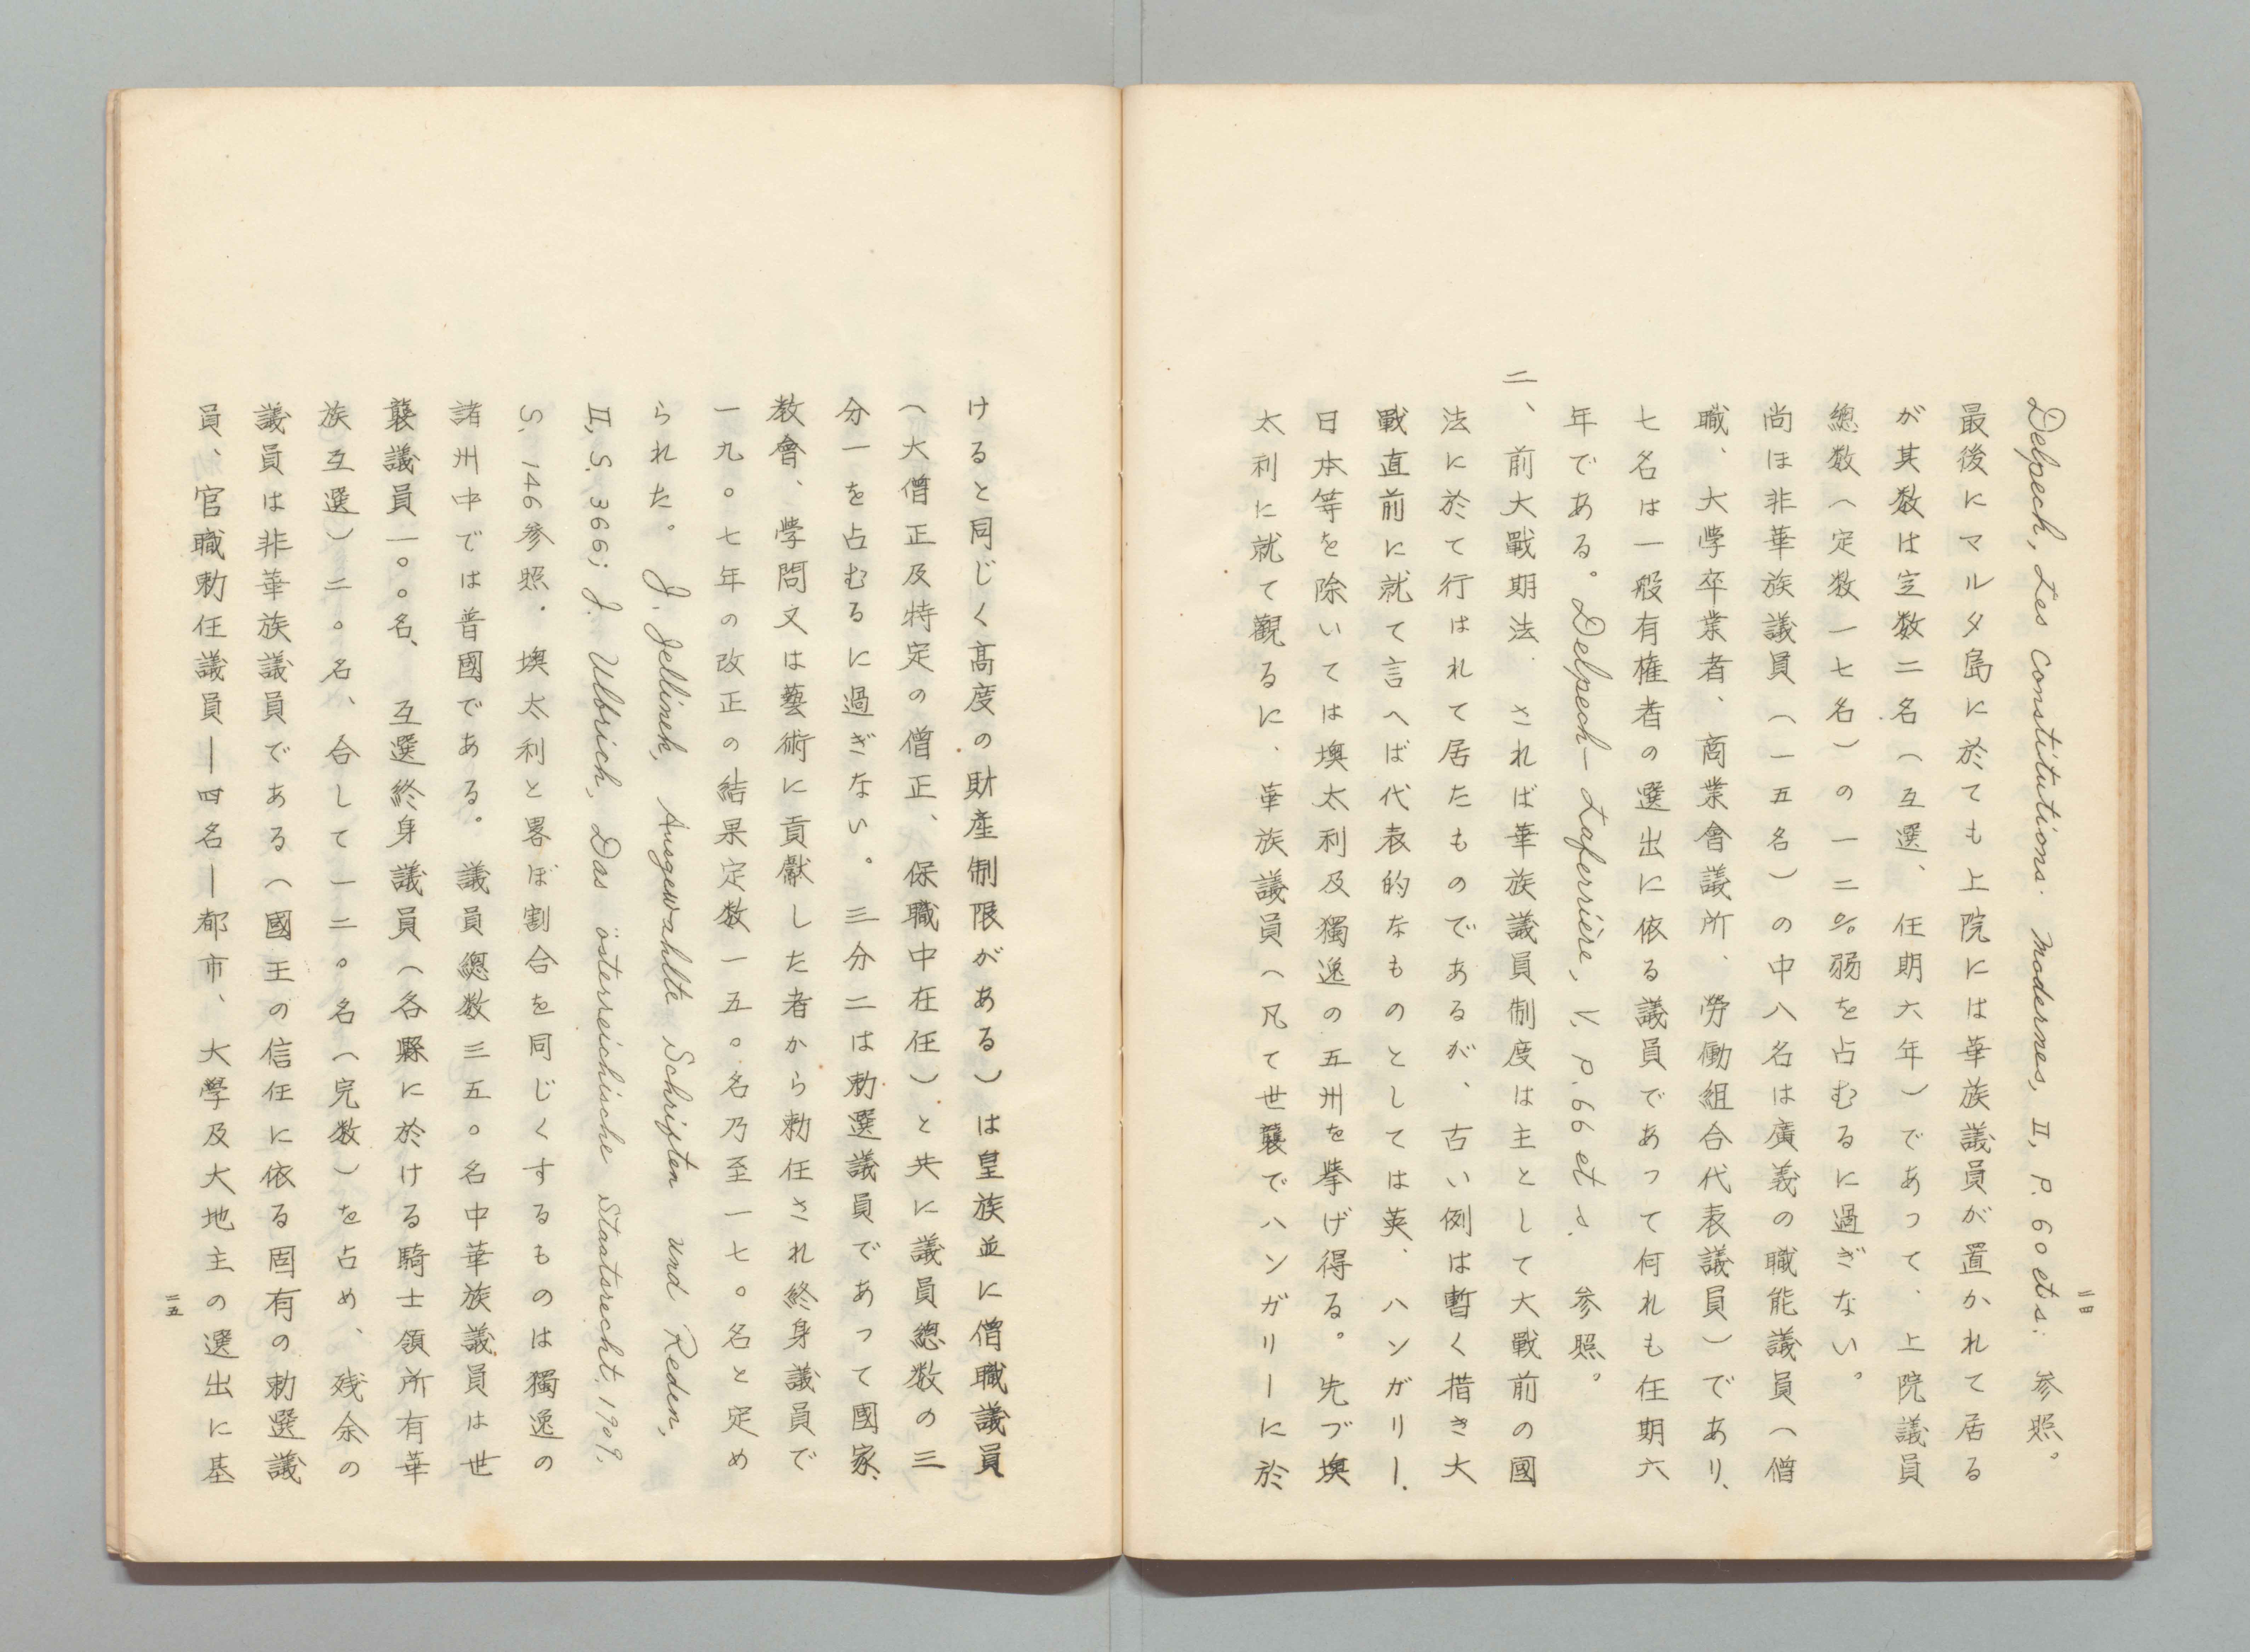 二四
Delpech, Les Constitutions. Modernes, II, P. 60 et s. 参照。
最後にマルタ島に於ても上院には華族議員が置かれて居る
が其数は定数二名（互選、任期六年）であって、上院議員
總数（定数一七名）の一二％弱を占むるに過ぎない。
尚ほ非華族議員（一五名）の中八名は廣義の職能議員（僧
職、大學卒業者、商業會議所、勞働組合代表議員）であり、
七名は一般有権者の選出に依る議員であって何れも任期六
年である。Delpech–Laferrière, V. P. 66 et s. 参照。
二、前大戰期法. されば華族議員制度は主として大戰前の國
法に於て行はれて居たものであるが、古い例は暫く措き大
戰直前に就て言へば代表的なものとしては英、ハンガリー、
日本等を除いては墺太利及獨逸の五州を挙げ得る。先づ墺
太利に就て觀るに、華族議員（凡て世襲でハンガリーに於
けると同じく高度の財産制限がある）は皇族並に僧職議員
（大僧正及特定の僧正、保職中在任）と共に議員總数の三
分一を占むるに過ぎない。三分二は勅選議員であって國家、
教會、學問又は藝術に貢獻した者から勅任され終身議員で
一九〇七年の改正の結果定数一五〇名乃至一七〇名と定め
られた。J. Jellinek, Ausgewahlte Schriften und Reden,
II, S. 366; J. Ulbrich, Das österreichische Staatsrecht, 1909,
S. 146参照. 墺太利と畧ぼ割合を同じくするものは獨逸の
諸州中では普國である。議員總数三五〇名中華族議員は世
襲議員一〇〇名、互選終身議員（各縣に於ける騎士領所有華
族互選）二〇名、合して一二〇名（完数）を占め、残余の
議員は非華族議員である（國王の信任に依る固有の勅選議
員、官職勅任議員―四名―都市、大學及大地主の選出に基
二五